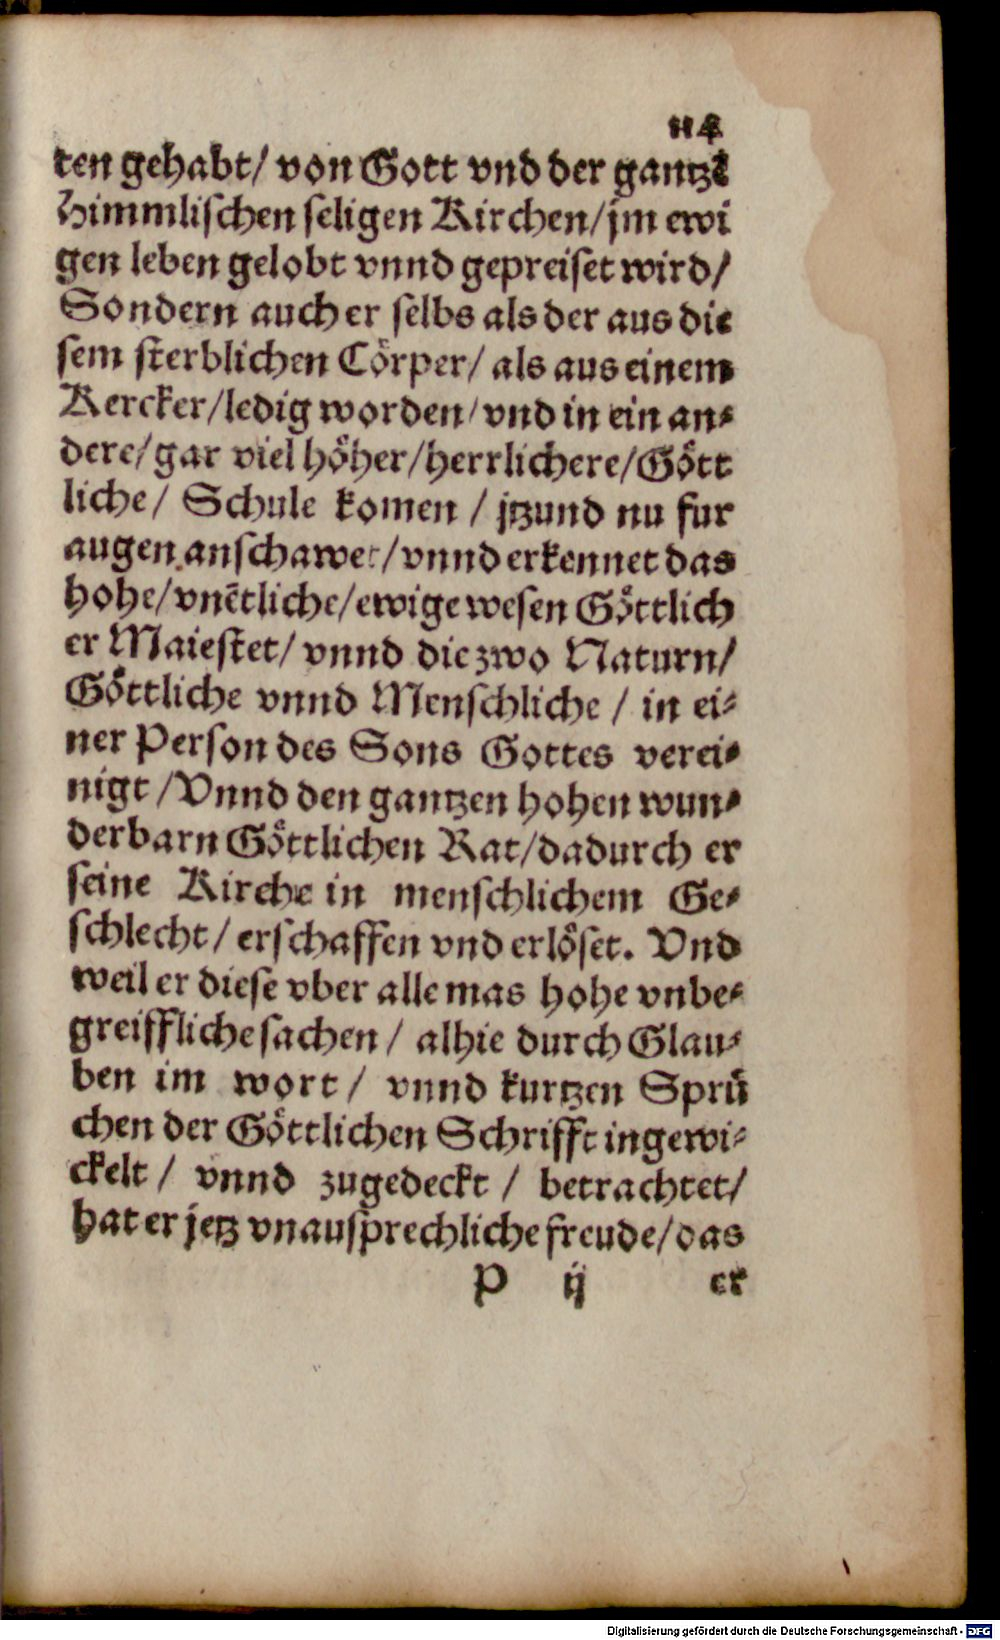 114
ten gehabt/ von Gott vnd der gantzē
Himmlischen seligen Kirchen/jm ewi
gen leben gelobt vnnd gepreiset wird/
Sondern auch er selbs als der aus die
sem sterblichen Cörper/ als aus einem
Kercker/ledig worden/vnd in ein an⸗
dere/gar viel höher/herrlichere/Gött
liche/ Schule komen / jtzund nu fur
augen anschawet/vnnd erkennet das
hohe/vnētliche/ewige wesen Göttlich
er Maiestet/ vnnd die zwo Naturn/
Göttliche vnnd Menschliche / in ei⸗
ner Person des Sons Gottes verei⸗
nigt /Vnnd den gantzen hohen wun⸗
derbarn Göttlichen Rat/dadurch er
seine Kirche in menschlichem Ge⸗
schlecht/ erschaffen vnd erlöset. Vnd
weil er diese vber alle mas hohe vnbe⸗
greiffliche sachen/ alhie durch Glau⸗
ben im wort/ vnnd kurtzen Sprü
chen der Göttlichen Schrifft ingewi⸗
ckelt/ vnnd zugedeckt/ betrachtet/
hat er jetz vnausprechliche freude/das
P ij er
Digitalisierung gefördert durch die Deutsche Forschungsgemeinschaft - DFG